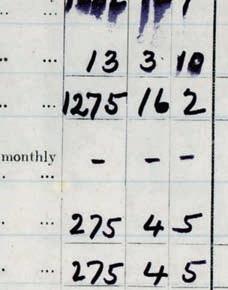 ...
... ... 13 3 10
... ... 1275 16 2
monthly - - -
... ...
. ... 275 4 5
. ... 275 4 5